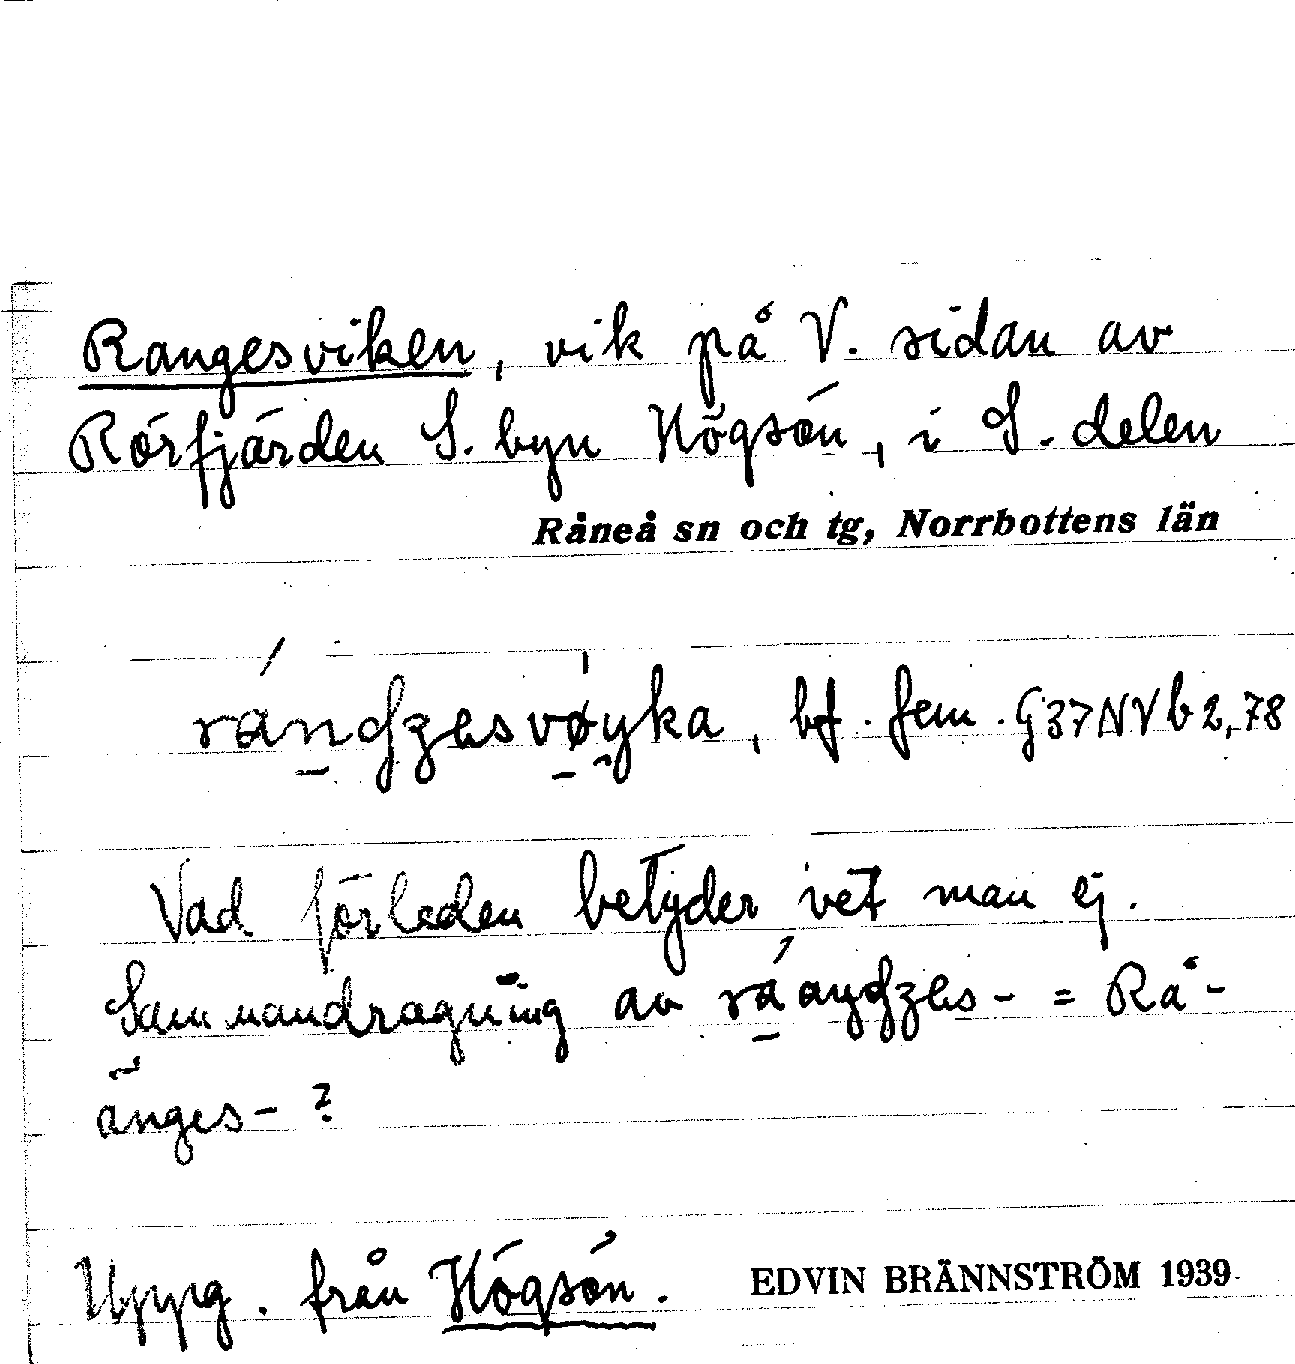 Rangesviken, vik på V. sidan av
Rörfjärden S. byn Högsön, i S. delen
Råneå sn och tg, Norrbottens län
rándzesvøyka, bf. fem. G37NVb2,78
Vad förleden betyder vet man ej.
Sammandragning av = Rå-
änges- ?
Uppg. från Högsön.
EDVIN BRÄNNSTRÖM 1939